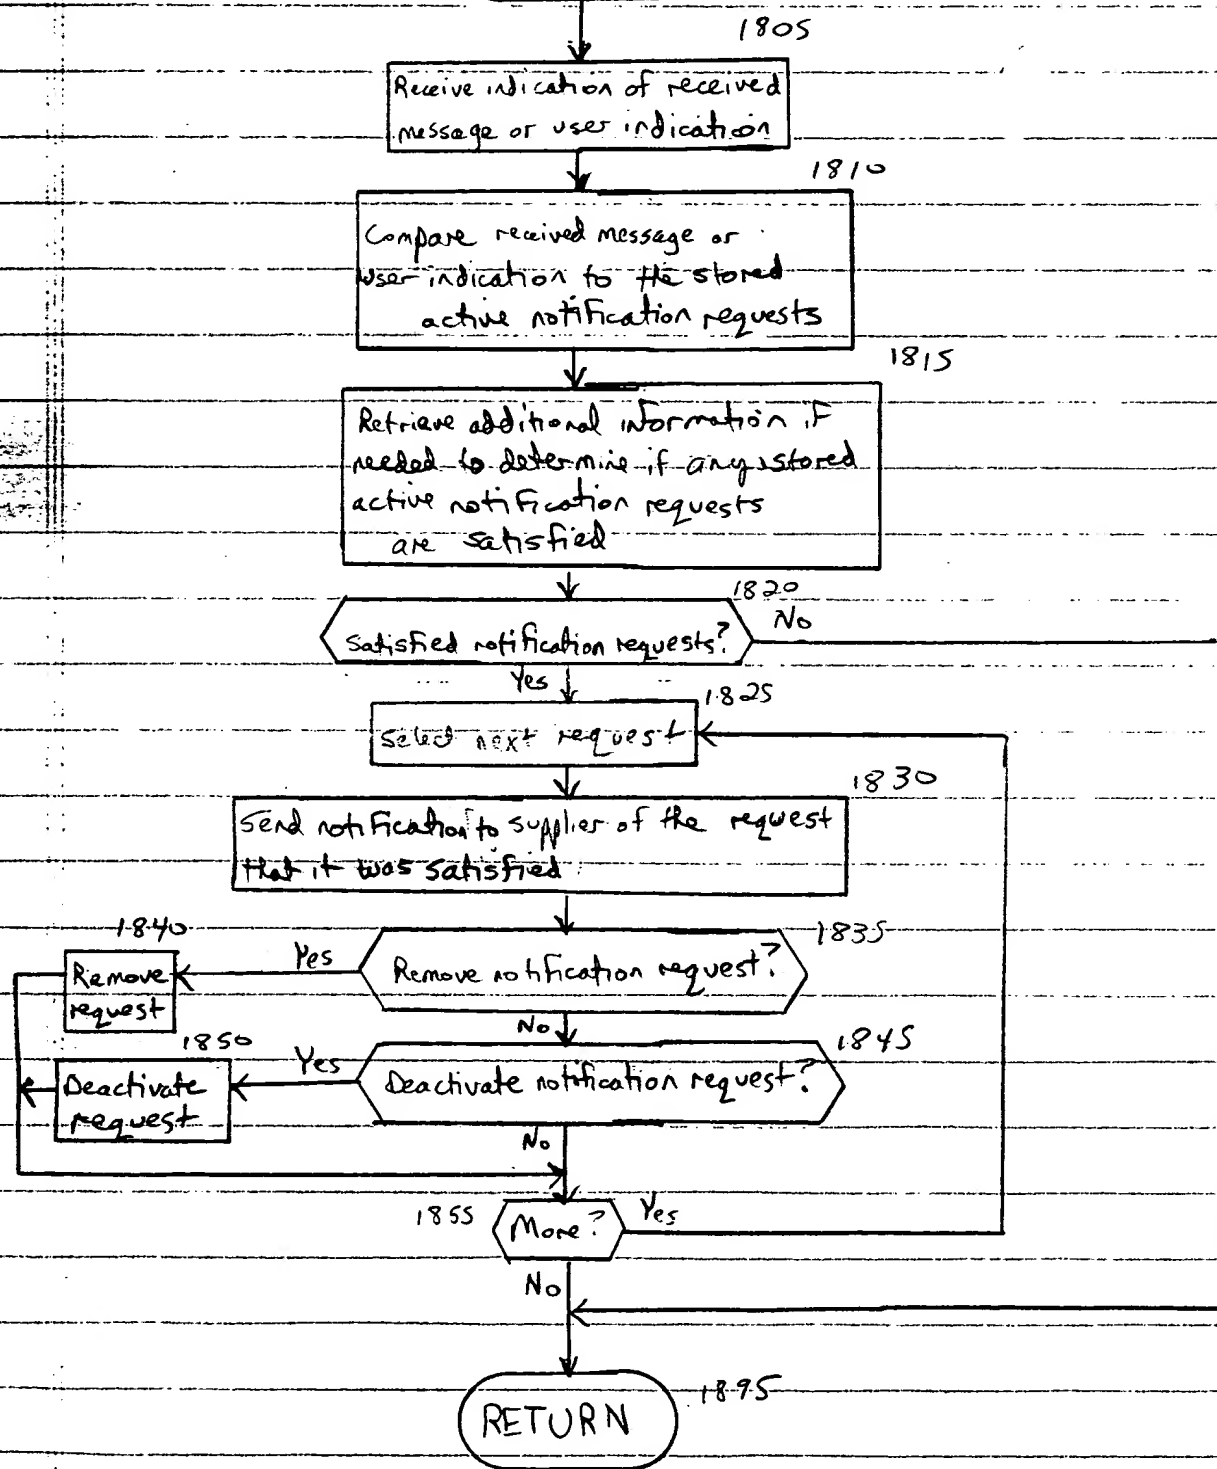 1805
Receive indication of received
message or user indication
1810
Compare received message or
user indication to the stored
active notification requests
1815
Retrieve additional information if
needed to determine if any stored
active notification requests
are satisfied
1820
Satisfied notification requests?
No
Yes
1825
Select next request
1830
Send notification to supplier of the request
that it was satisfied
1835
Remove notification request?
Yes
1840
Remove
request
No
1845
Deactivate notification request?
Yes
1850
Deactivate
request
No
1855
More?
Yes
No
1895
RETURN